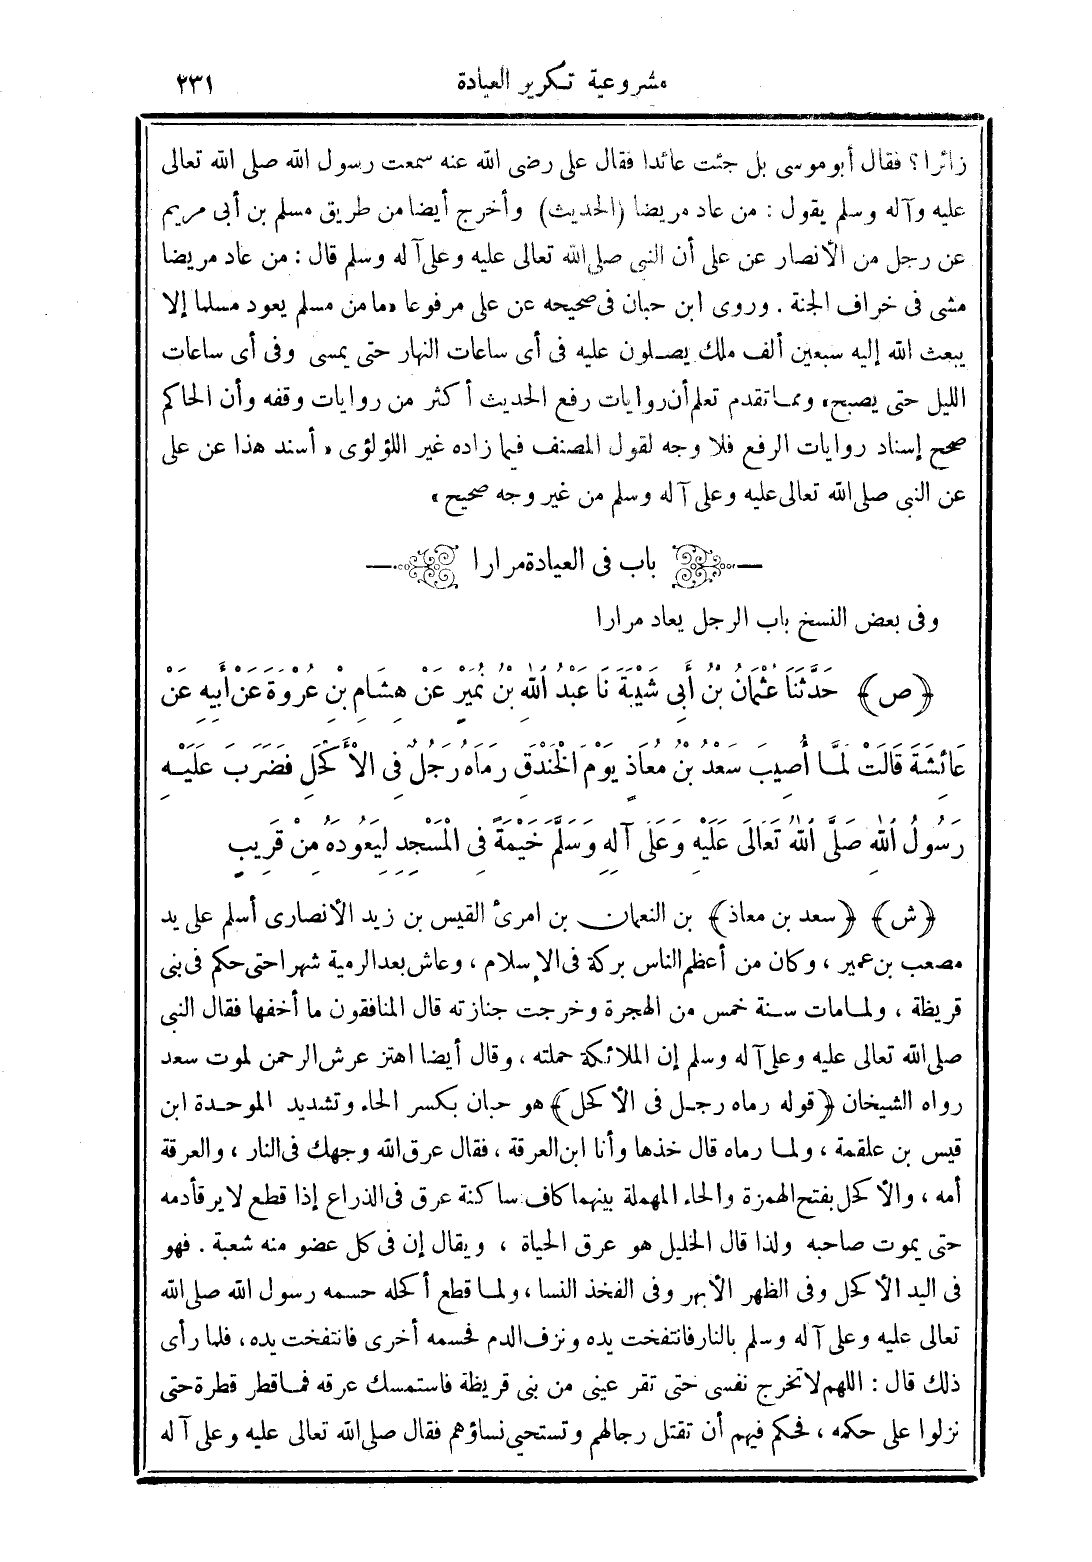 مشروعية تكرير العيادة ٢٣١
زائرا؟ فقال أبو موسى بل جئت عائدا فقال على رضى الله عنه سمعت رسول الله صلى الله تعالى
عليه وآله وسلم يقول : من عاد مريضا (الحديث) وأخرج أيضا من طريق مسلم بن أبى مريم
عن رجل من الأنصار عن على أن النبى صلى الله تعالى عليه وعلى آله وسلم قال : من عاد مريضا
مشى فى خراف الجنة . وروى ابن حبان فى صحيحه عن على مرفوعا «ما من مسلم يعود مسلما إلا
يبعث الله إليه سبعين ألف ملك يصلون عليه فى أى ساعات النهار حتى يمسى وفى أى ساعات
الليل حتى يصبح» ومما تقدم تعلم أن روايات رفع الحديث أكثر من روايات وقفه وأن الحاكم
صحح إسناد روايات الرفع فلا وجه لقول المصنف فيما زاده غير اللؤلؤى «أسند هذا عن على
عن النبى صلى الله تعالى عليه وعلى آله وسلم من غير وجه صحيح»
باب فى العيادة مرارا
وفى بعض النسخ باب الرجل يعاد مرارا
﴿ص﴾ حَدَّثَنَا عُثْمَانُ بْنُ أَبِي شَيْبَةَ نَا عَبْدُ اللهِ بْنُ نُمَيْرٍ عَنْ هِشَامِ بْنِ عُرْوَةَ عَنْ أَبِيهِ عَنْ
عَائِشَةَ قَالَتْ لَمَّا أُصِيبَ سَعْدُ بْنُ مُعَاذٍ يَوْمَ الْخَنْدَقِ رَمَاهُ رَجُلٌ فِى الْأَكْحَلِ فَضَرَبَ عَلَيْهِ
رَسُولُ اللهِ صَلَّى اللهُ تَعَالَى عَلَيْهِ وَعَلَى آلِهِ وَسَلَّمَ خَيْمَةً فِى الْمَسْجِدِ لِيَعُودَهُ مِنْ قَرِيبٍ
﴿ش﴾ ﴿سعد بن معاذ﴾ بن النعمان بن امرئ القيس بن زيد الأنصارى أسلم على يد
مصعب بن عمير ، وكان من أعظم الناس بركة فى الإسلام ، وعاش بعد الرمية شهرا حتى حكم فى بنى
قريظة ، ولما مات سنة خمس من الهجرة وخرجت جنازته قال المنافقون ما أخفها فقال النبى
صلى الله تعالى عليه وعلى آله وسلم إن الملائكة حملته ، وقال أيضا اهتز عرش الرحمن لموت سعد
رواه الشيخان ﴿قوله رماه رجل فى الأكحل﴾ هو حبان بكسر الحاء وتشديد الموحدة ابن
قيس بن علقمة ، ولما رماه قال خذها وأنا ابن العرقة ، فقال عرق الله وجهك فى النار ، والعرقة
أمه ، والأكحل بفتح الهمزة والحاء المهملة بينهما كاف ساكنة عرق فى الذراع إذا قطع لا يرقأ دمه
حتى يموت صاحبه ولذا قال الخليل هو عرق الحياة ، ويقال إن فى كل عضو منه شعبة . فهو
فى اليد الأكحل وفى الظهر الأبهر وفى الفخذ النسا ، ولما قطع أكحله حسمه رسول الله صلى الله
تعالى عليه وعلى آله وسلم بالنار فانتفخت يده ونزف الدم فحسمه أخرى فانتفخت يده ، فلما رأى
ذلك قال : اللهم لا تخرج نفسى حتى تقر عينى من بنى قريظة فاستمسك عرقه فما قطر قطرة حتى
نزلوا على حكمه ، فحكم فيهم أن تقتل رجالهم وتستحيى نساؤهم فقال صلى الله تعالى عليه وعلى آله